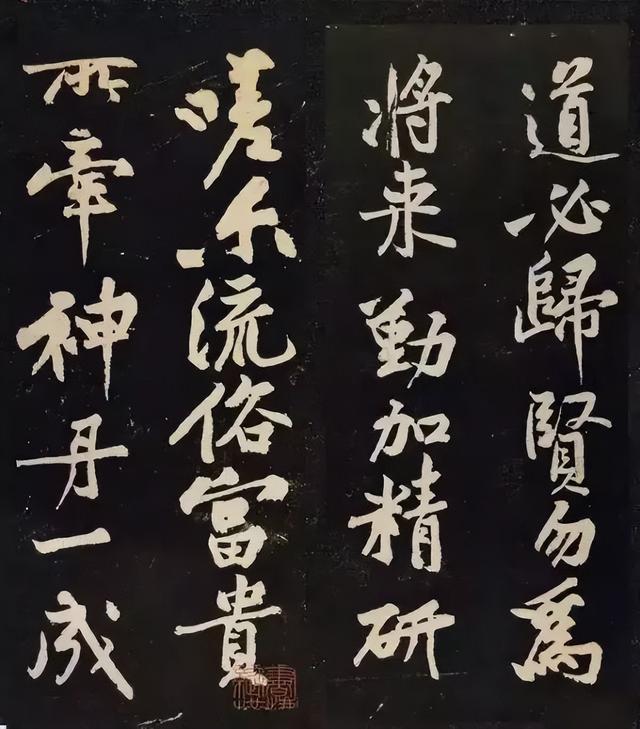 道必歸賢勿為
將来勤加精研
嗟尔流俗富貴
所牽神丹一成